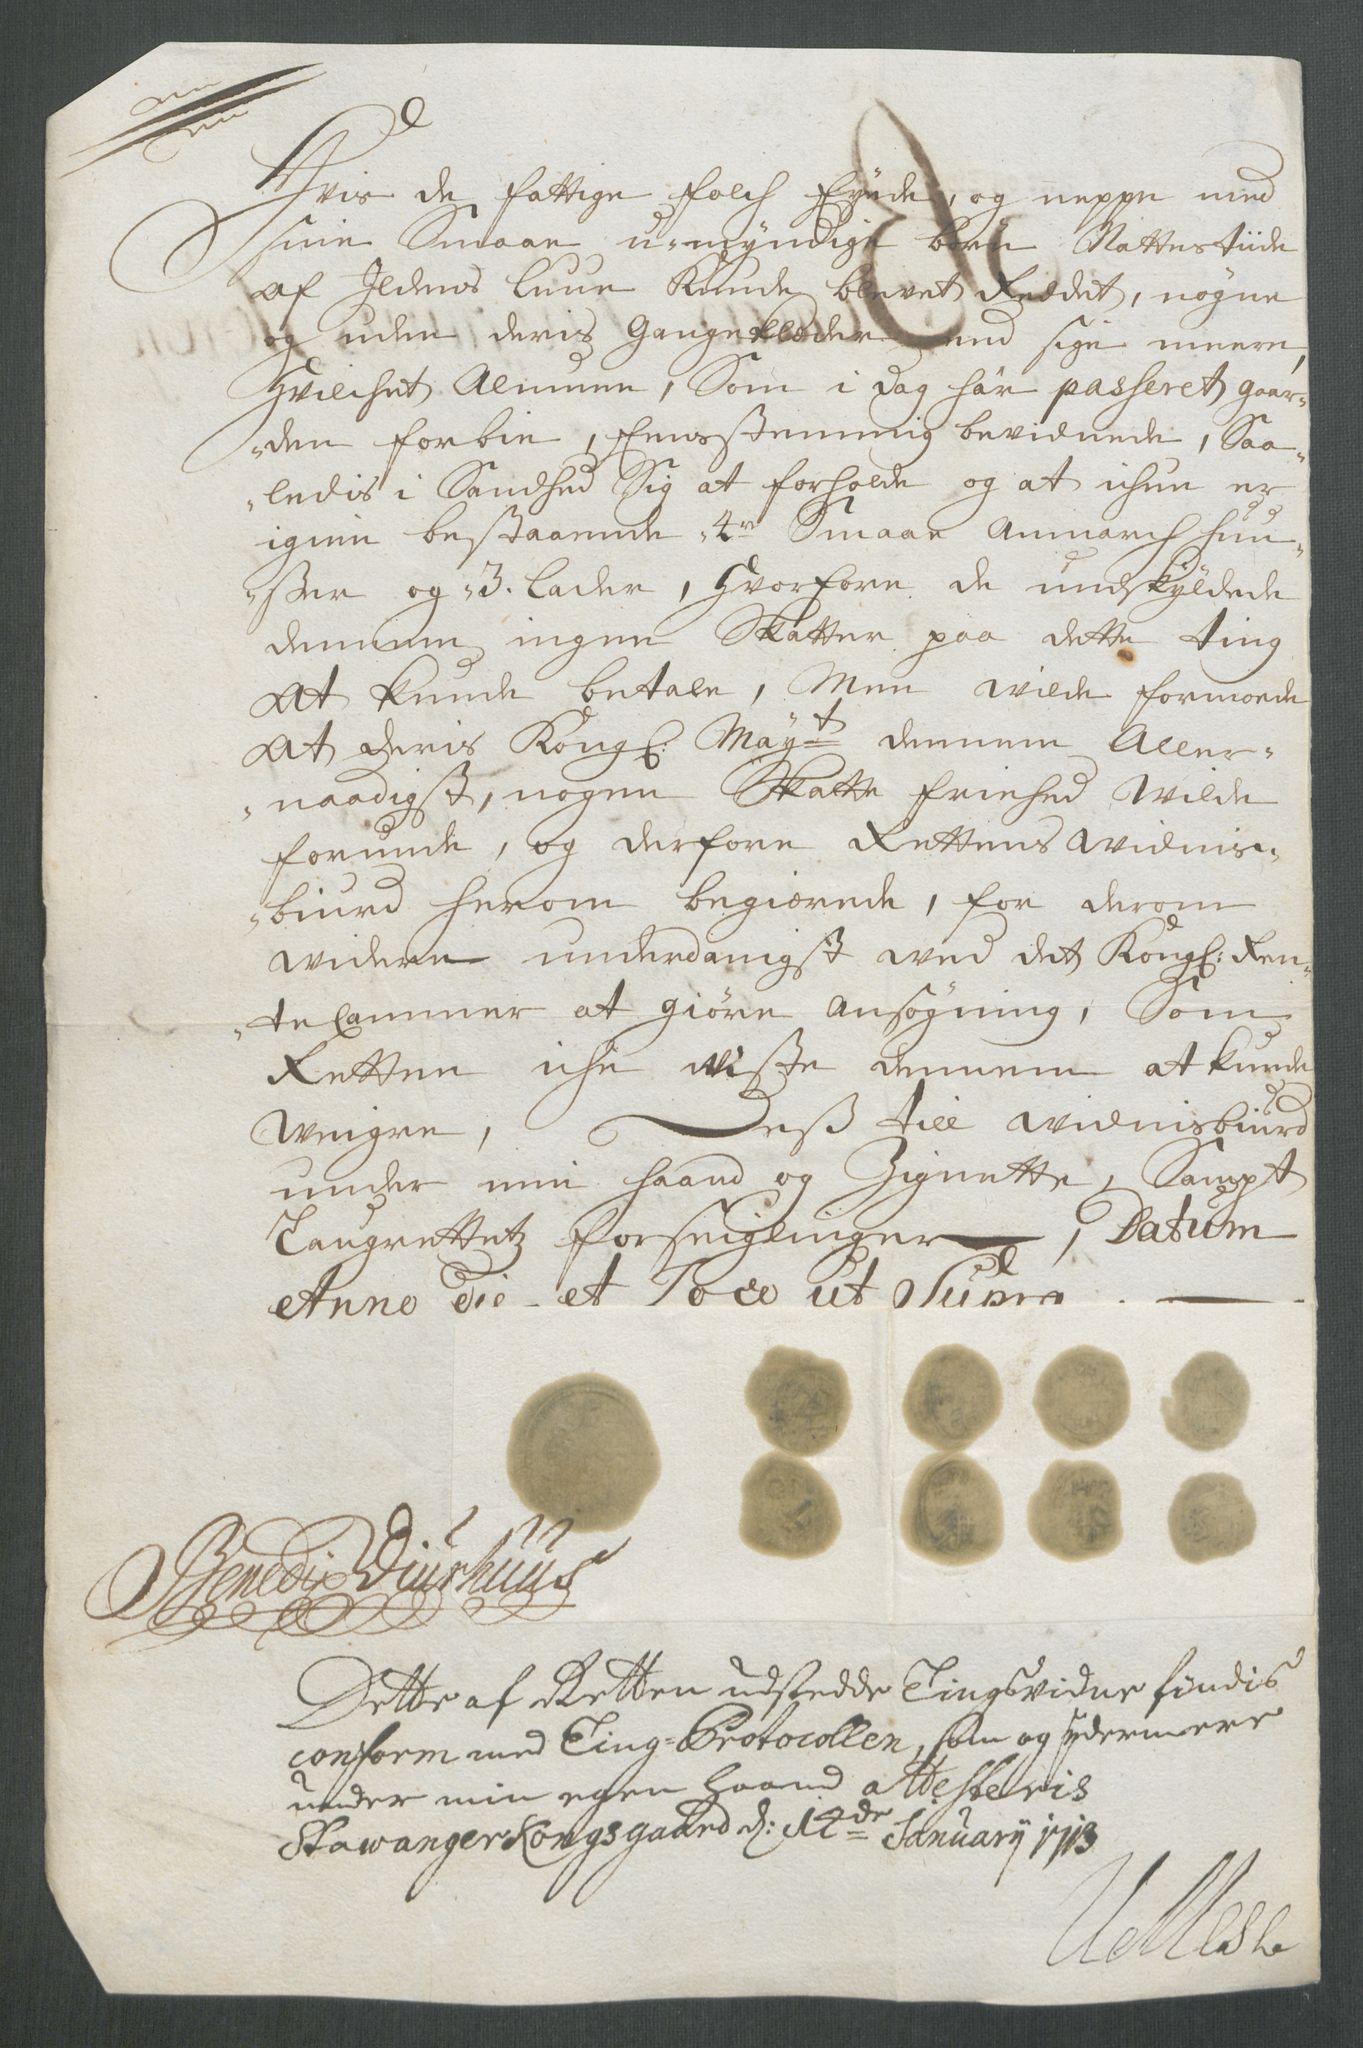 Hvis de fattige folch Eyede, og neppe med
sine Smaae u-myndige börn Nattestiide
af Ildens lue kunde blevet Reddet, nögne
og uden deris Gangeklæder end sige meere,
Hvilchet Almuen, Som i dag här passeret gaar-
den forbie, Eensstemmig bevidnede, Saa-
ledis i Sandhed Sig at forholde og at ichun er
igien bestaaende 4re Smaae Anmarch huu-
sser og 3. Lader, Hvorfore de undskyldede
dennem ingen Skatter paa dette ting
At kunde betale, Men wilde formoede
At deris Kongl: Mayt dennem Aller-
naadigst, nogen Skatte friehed Wilde
forunde, og derfore Rettens widnis-
biurd herom begierede, for derom
widere underdanigst wed det Kongl: Ren-
te Cammer at giöre Ansögning, Som
Retten iche wiste dennem at kunde
weigre, Dess till widnisbiurd
under min haand og Zignette, Sampt
Laugrettetz forseiglinger, Datum
Anno Die et Loco ut Supra.
Benedix Diurhuus
Dette af Retten udstedde Tingsvidne findis
conform med Ting-Protocollen, som og ydermere
under min egen haand attesteris
Stawanger Kongsgaard d: 14de January 1713